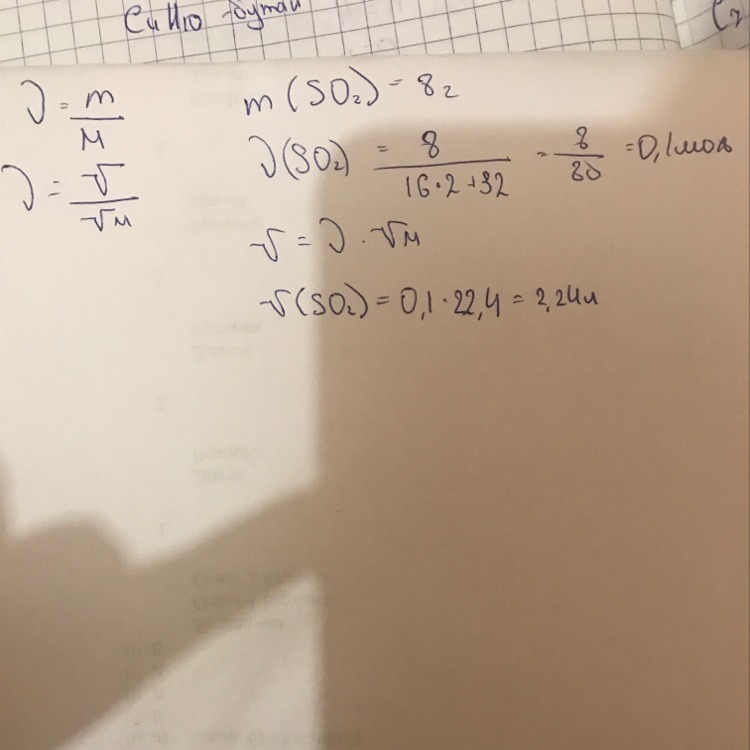 C4H10 бутан
ν = m/M
ν = V/Vм
m(SO₂) = 8г
ν(SO₂) = 8/(16·2+32) = 8/80 = 0,1моль
V = ν · Vм
V(SO₂) = 0,1·22,4 = 2,24л